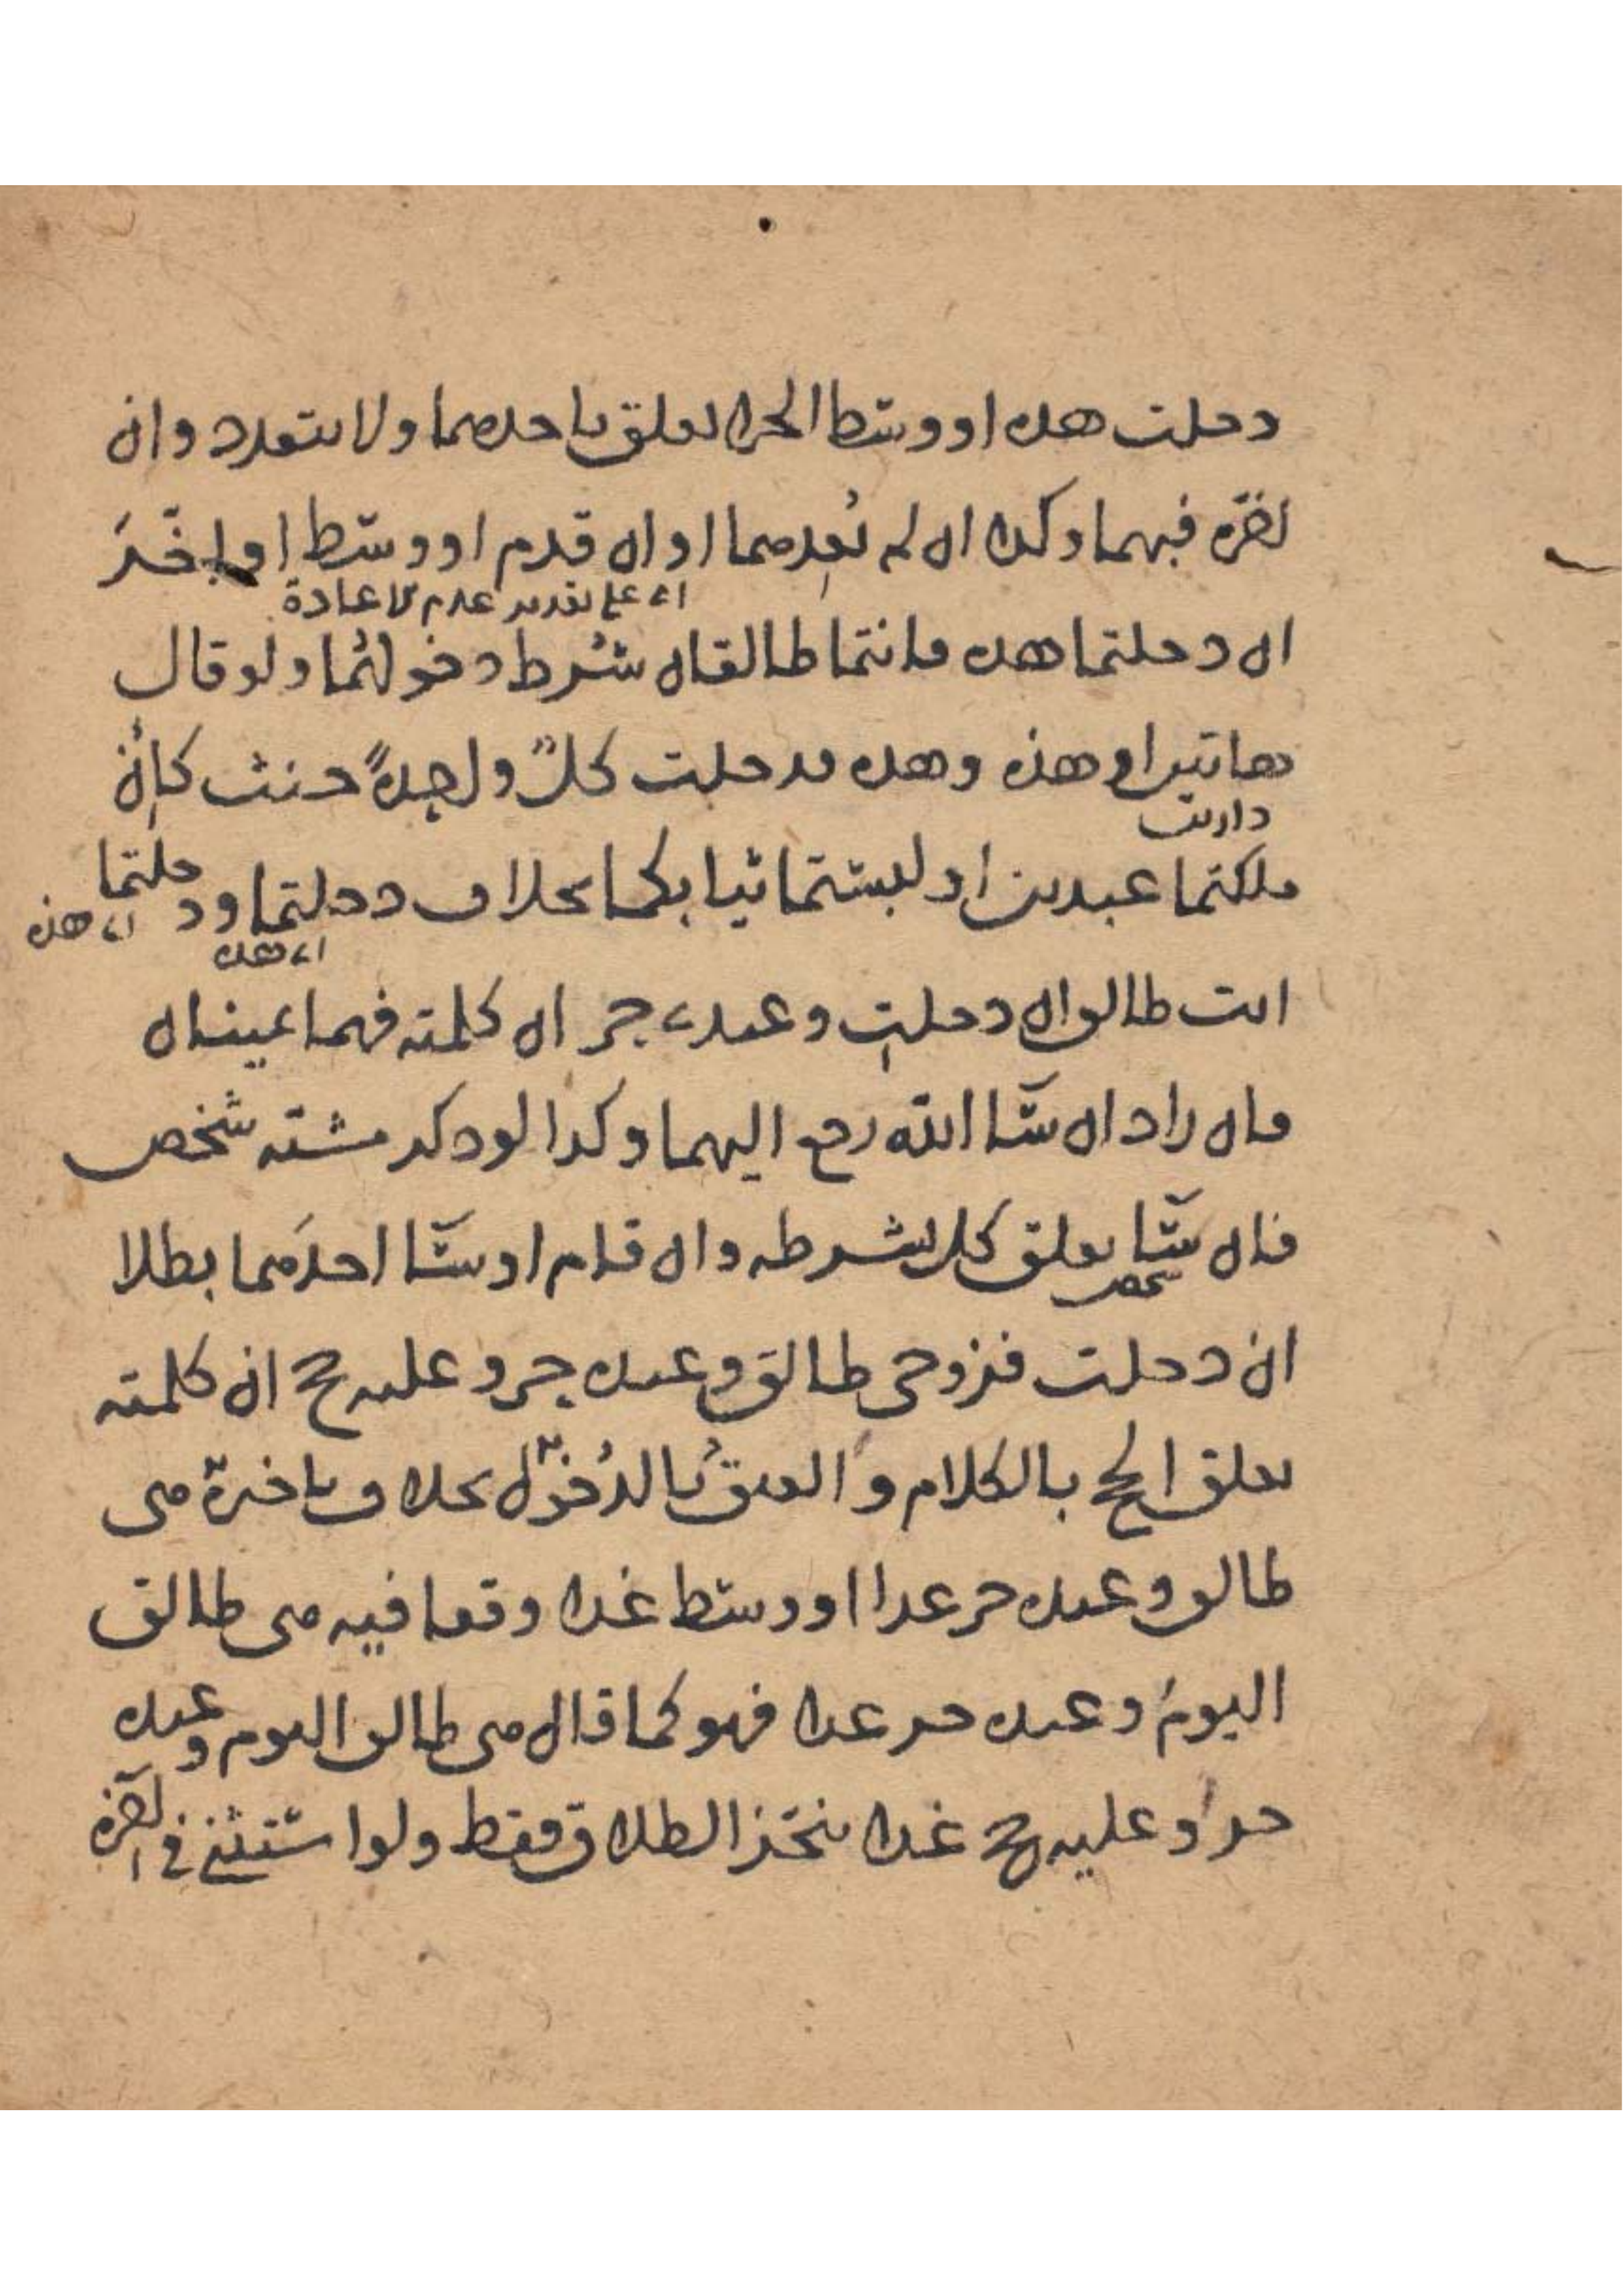 دخلت هذه او وسط الجزا تعلق باحدهما ولا يتعدد وان
تقرّه فيهما وكذا ان لم نُعدهما او ان قدم او وسّط او اخّرَ
اى على تقدير عدم الاعادة
ان دخلتما هذه فانتما طالقان شُرط دخولهُما ولو قال
هاتين او هذه وهذه فدخلت كلٌّ واحدةً حنث كاِنْ
دارين
ملكتما عبدين او لبستما ثيابكما بخلاف دخلتما ودخلتما
اى هذه اى هذه
انت طالق ان دخلتِ وعبدى حر ان كلمته فهما يمينان
فان زاد ان شآ الله رجع اليهما وكذا لو ذكر مشئة شخص
فان شآ تعلق كل بشرطه وان قام او شآ احدَهما بطلا
شخص
ان دخلت فزوجى طالق وعبده حر وعليه حج ان كلمته
تعلق الحج بالكلام والعتقُ بالدُخول بخلاف تاخيره هى
طالق وعبده حر غدا او وسط غدا وقعا فيه هى طالق
اليومَ وعبده حر غدا فهو كما قال هى طالق اليوم وعبده
حر وعليه حج غدا تنجّز الطلاق فقط ولو استثنى فى آخره